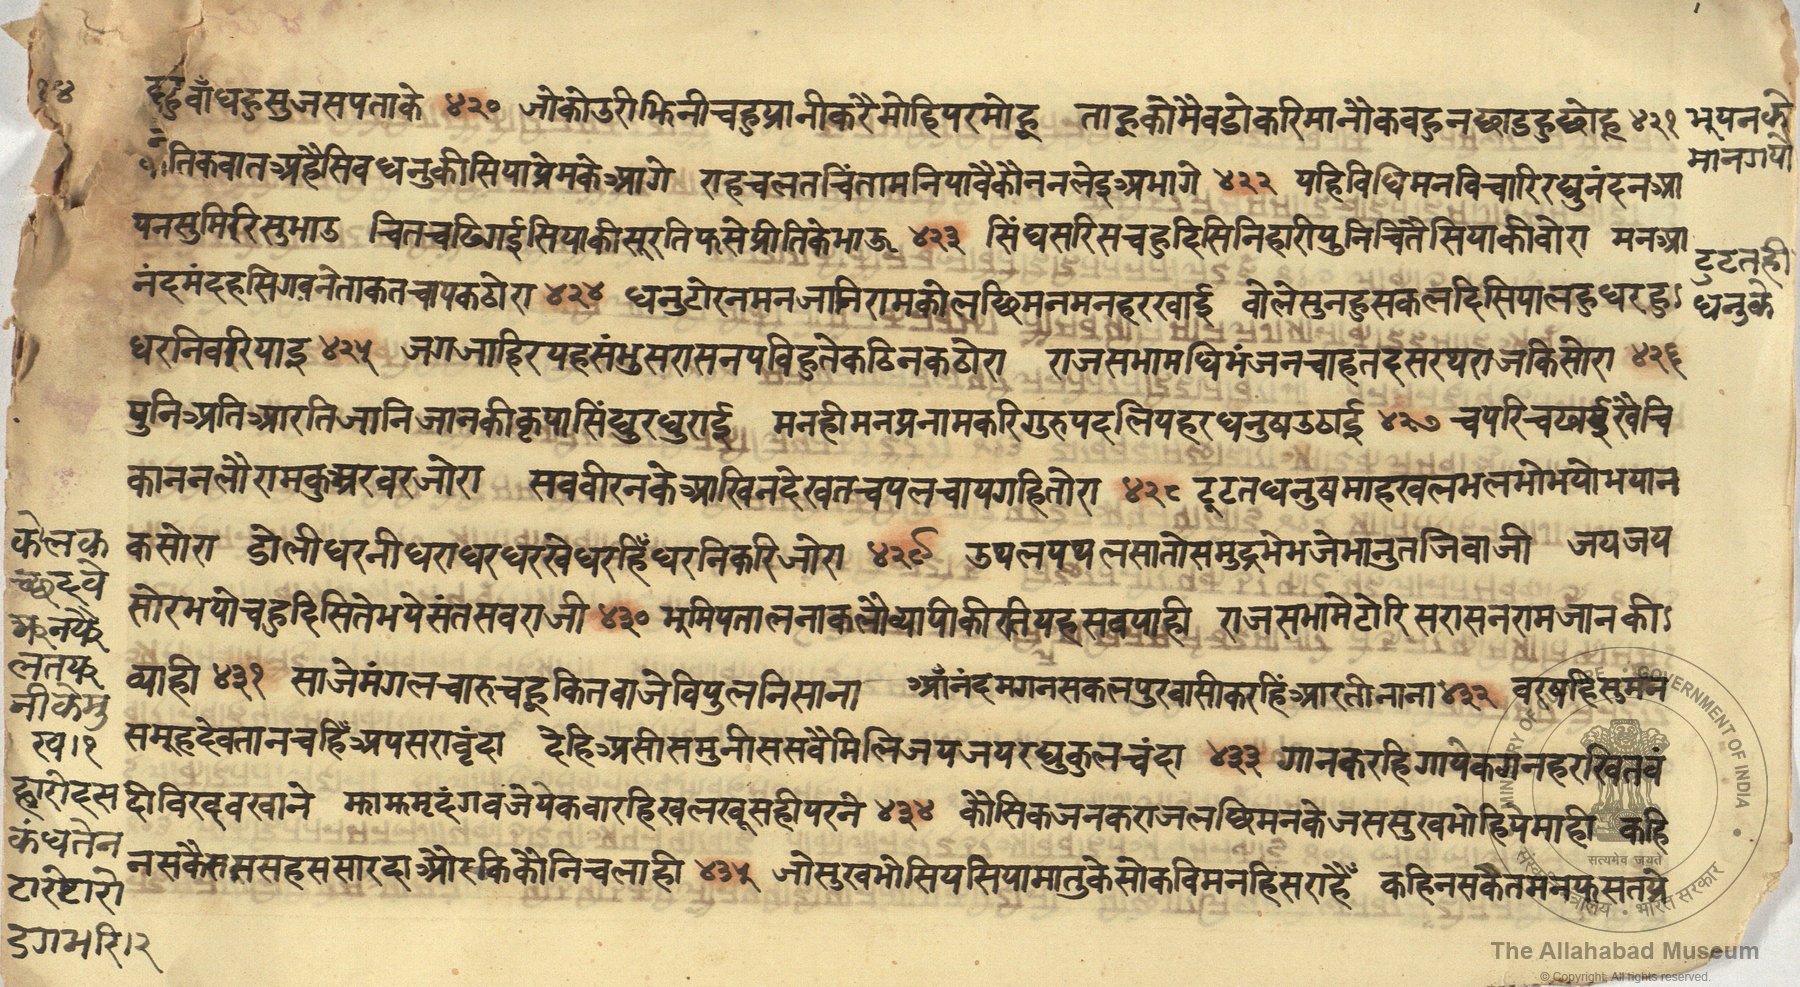 १४
दहु वाँधहु सुजस पताके ४२० जो कोउ रीझिनीचहु प्रानी करै मोहि पर मोहू ताहू को मै वडो करि मानौ कवहु न छाडहु छोहू ४२१
तिक वात अहै सिव धनु की सिया प्रेम के आगे राह चलत चिंतामनि पावै कौन न लेइ अभागे ४२२ यहि विधि मन विचारि रघुनंदन आ
पन सुमिरि सुभाउ चित चढि गई सिया की सूरति फसे प्रीति के भाऊ ४२३ सिंघ सरिस चहु दिसि निहारी पुनि चितै सिया की वोरा मन आ
नंद मंद हसि गवने ताकत चाप कठोरा ४२४ धनु टोरन मन जानि राम को लछिमन मन हरखाई वोले सुनहु सकल दिसिपालहु धरहु
धरनि वरियाइ ४२५ जग जाहिर यह संभु सरासन पविहु ते कठिन कठोरा राज सभा मधि भंजन चाहत दसरथ राज किसोरा ४२६
पुनि अति आरति जानि जानकी कृपासिंधु रघुराई मनही मन प्रनाम करि गुरु पद लिय हर धनुष उठाई ४२७ चपरि चढाई खैचि
कानन लौ राम कुअर वरजोरा सव वीरन के आखिन देखत चपल चाप गहि तोरा ४२८ टूटत धनुष माह खलभल मो भयो भयान
क सोरा डोली धरनी धराधर धरखे धरहिँ धरनि करि जोरा ४२९ उथल पथल सातो समुद्र भे भजे भानु तजि वाजी जय जय
सोर भयो चहु दिसि ते भये संत सव राजी ४३० भुमि पताल नाक लौ व्यापी कीरति यह सव पाही राज सभा मे टोरि सरासन राम जानकी
व्याही ४३१ साजे मंगल चारु चहू कित वाजे विपुल निसाना आँनंद मगन सकल पुरवासी करहिं आरती नाना ४३२ वरषहिं सुमन
समूह देवता नचहिँ अपसरा वृंदा देहि असीस मुनीस सवै मिलि जय जय रघुकुल चंदा ४३३ गान करहि गायेक गन हरखित वं
दी विरद वखाने झाझ मृदंग वजे येक वारहि खल खूसही परने ४३४ कौसिक जनकराज लछिमन के जस सुख भो हिय माही कहि
न सकै सहस सारदा औरु कि कौनि चलाही ४३५ जो सुख भो सिय सिया मातु के सो कवि मनहि सराहैँ कहि न सकै तमन
भूपन के
मान गयो
टुटतही
धनु के
नी के मु
ख।१
कंध तेन
टारे टारो
डग भरि।२
सत्यमेव जयते
MINISTRY OF CULTURE • GOVERNMENT OF INDIA
भारत सरकार
The Allahabad Museum
© Copyright. All rights reserved.